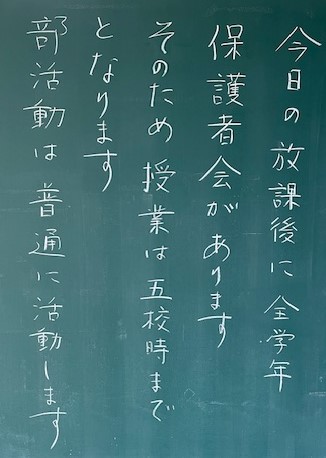 今日の放課後に全学年
保護者会があります
そのため授業は五校時まで
となります
部活動は普通に活動します